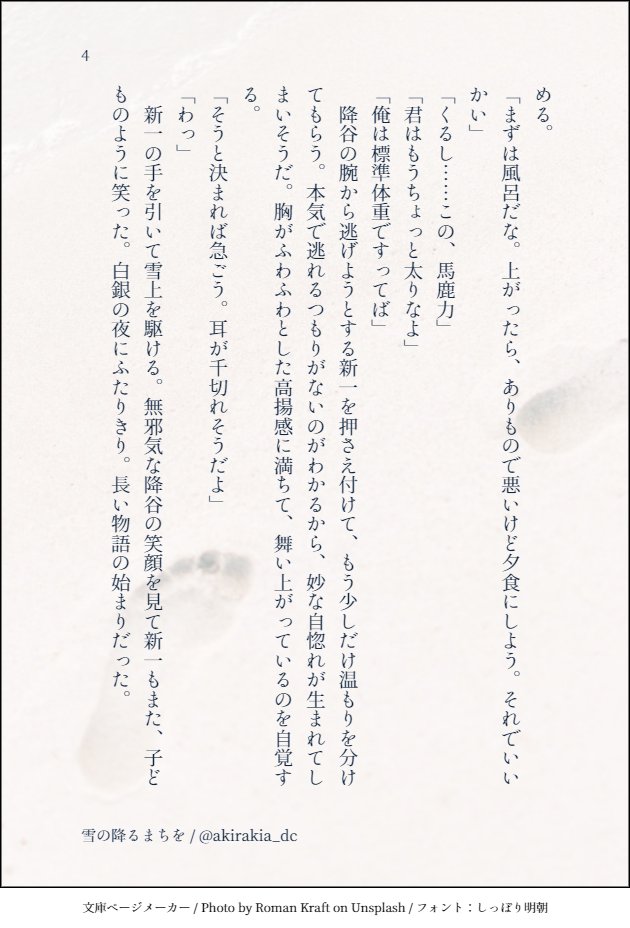 4
める。
「まずは風呂だな。上がったら、ありもので悪いけど夕食にしよう。それでいい
かい」
「くるし……この、馬鹿力」
「君はもうちょっと太りなよ」
「俺は標準体重ですってば」
　降谷の腕から逃げようとする新一を押さえ付けて、もう少しだけ温もりを分け
てもらう。本気で逃れるつもりがないのがわかるから、妙な自惚れが生まれてし
まいそうだ。胸がふわふわとした高揚感に満ちて、舞い上がっているのを自覚す
る。
「そうと決まれば急ごう。耳が千切れそうだよ」
「わっ」
　新一の手を引いて雪上を駆ける。無邪気な降谷の笑顔を見て新一もまた、子ど
ものように笑った。白銀の夜にふたりきり。長い物語の始まりだった。
雪の降るまちを / @akirakia_dc
文庫ページメーカー / Photo by Roman Kraft on Unsplash / フォント：しっぽり明朝